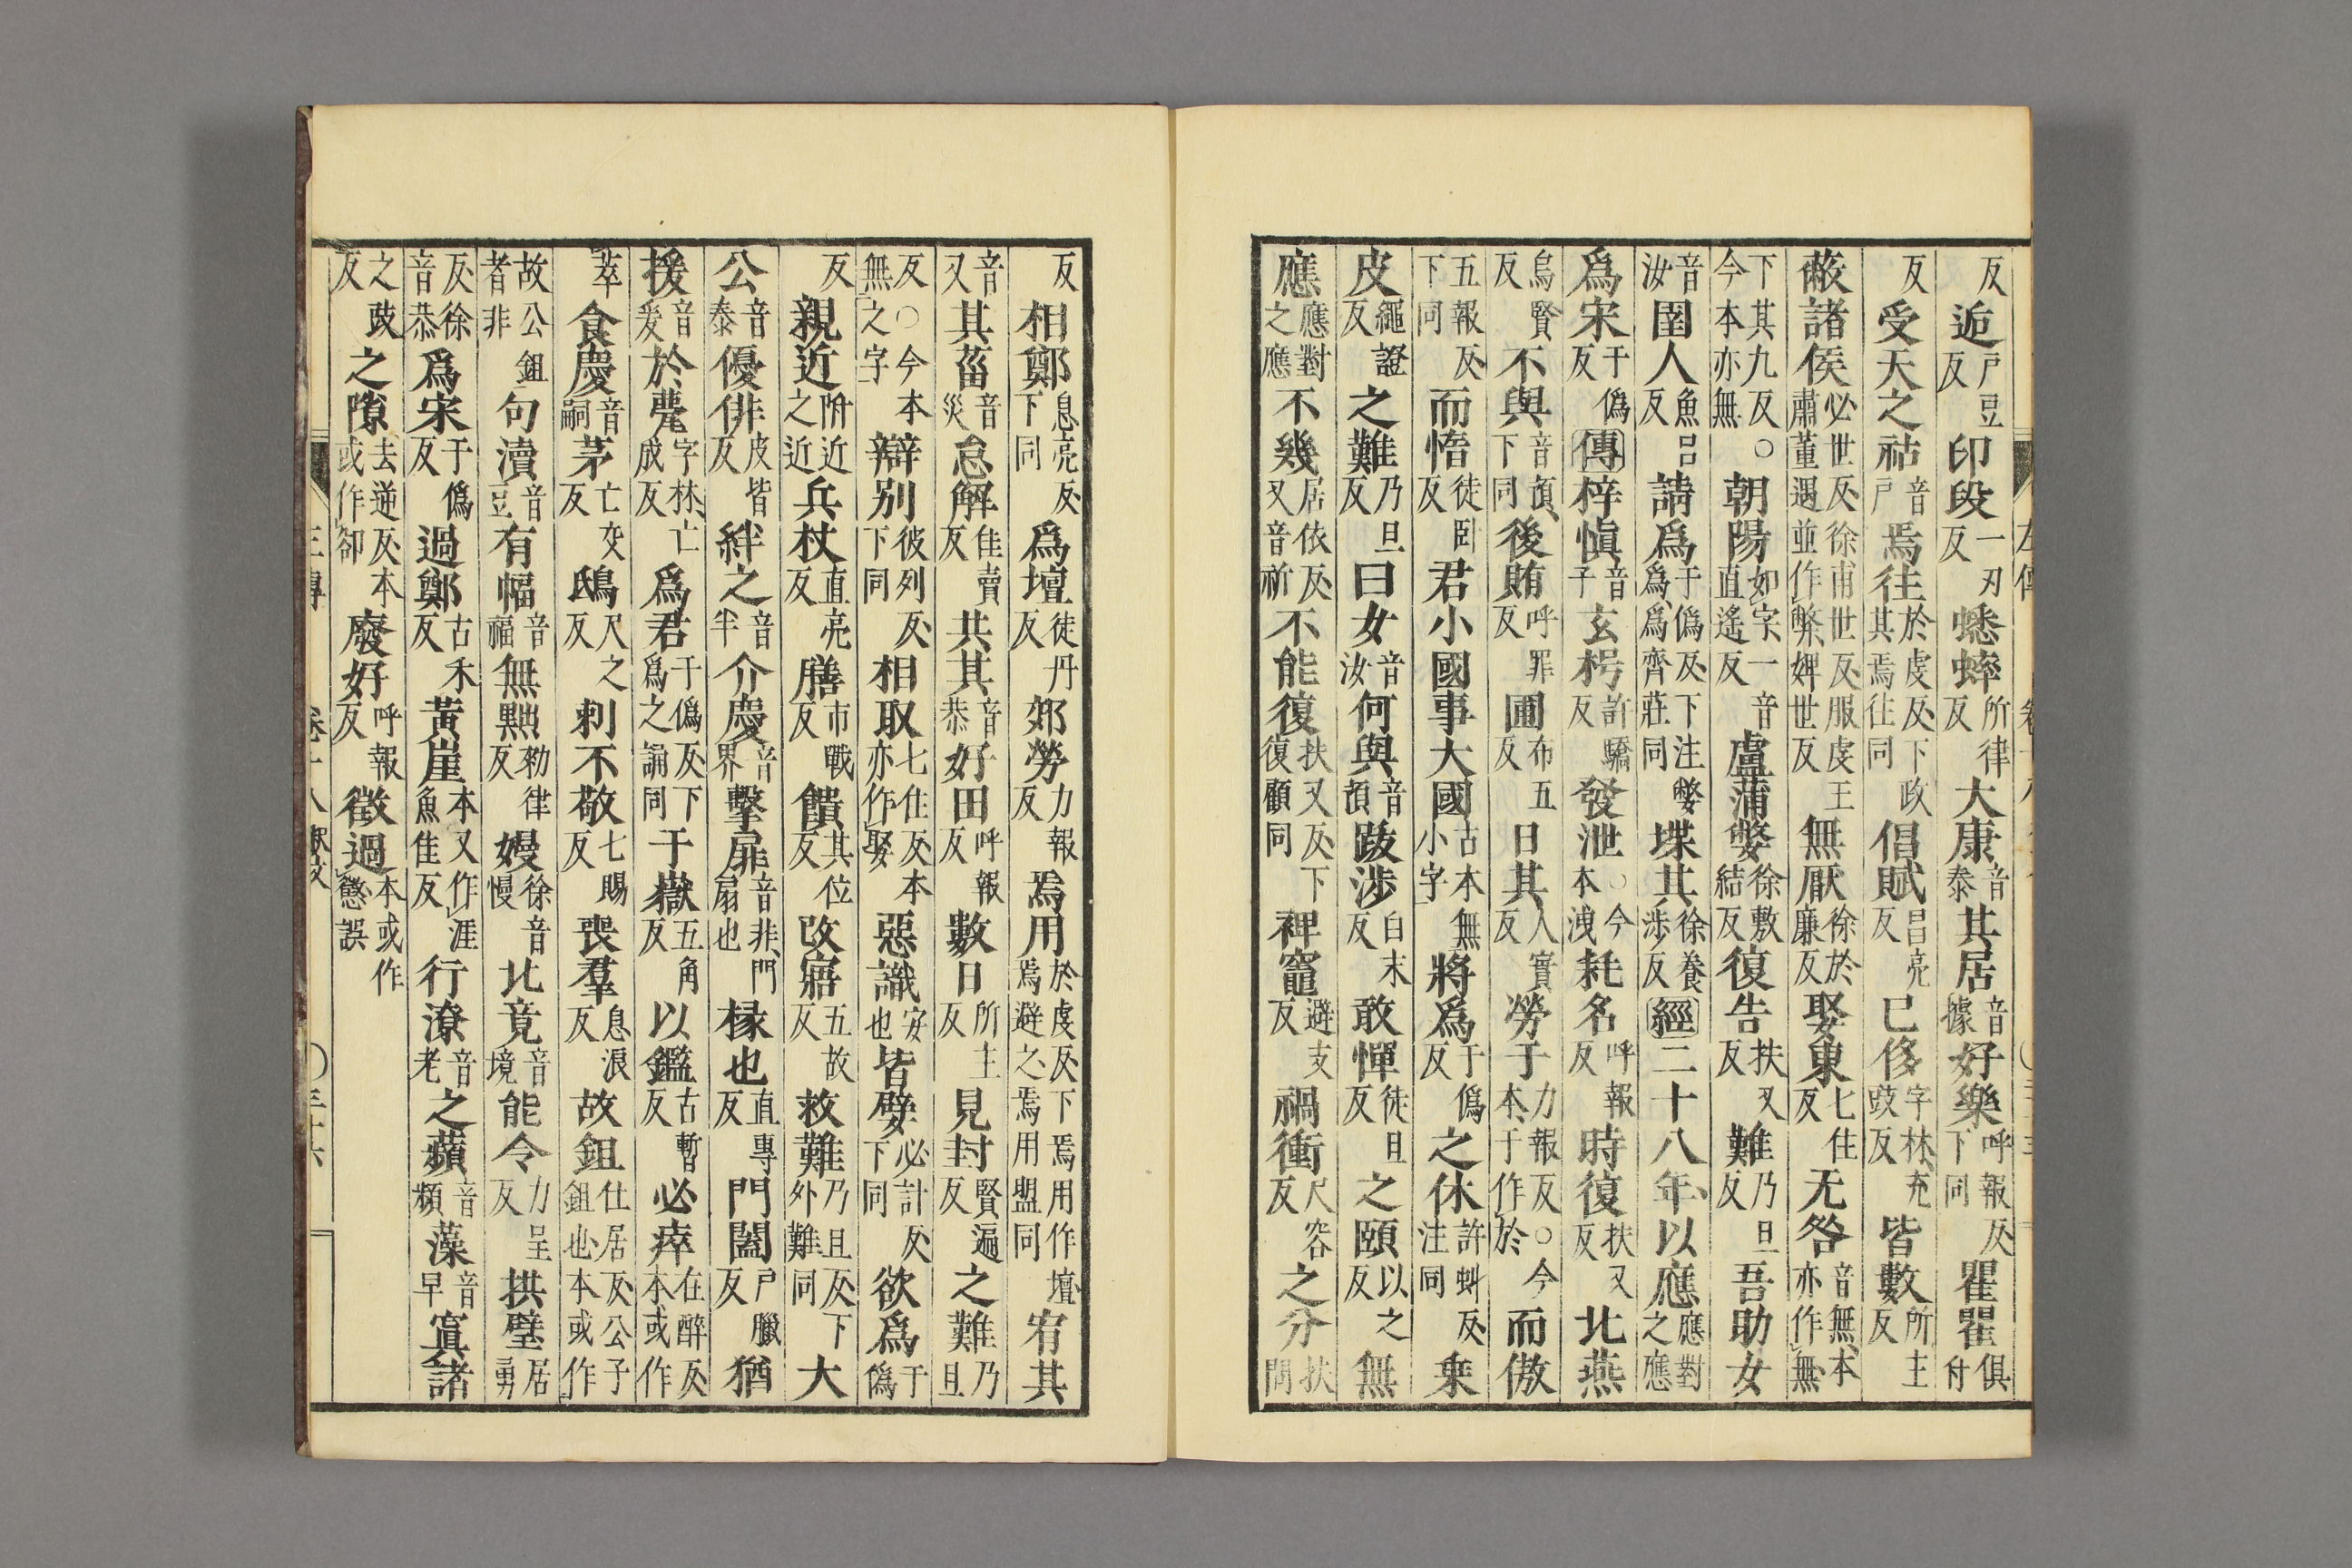 反逅戶豆反印段一刃反蟋蟀所律反大康音泰其居音據好樂呼報反下同瞿瞿俱付
反受天之祜音戶焉往於虔反下政其焉往同倡賦昌亮反已侈字林充豉反皆數所主反
蔽諸侯必世反徐甫世反服虔王肅董遇並作弊婢世反無厭徐於廉反娶東七住反无咎音無本亦作無
下其九反○今本亦無朝陽如字一音直遙反盧蒲嫳徐敷結反復告扶又反難乃旦反吾助女
音汝圉人魚呂反請爲于僞反下注嫳爲爲齊莊同堞其徐養涉反經二十八年以應應對之應
爲宋于僞反傳梓愼音子玄枵許驕反發泄○今本洩耗名呼報反時復扶又反北燕
烏賢反不與音預下同後賄呼罪反圃布五反日其人實反勞于力報反○今本于作於而傲
五報反下同而惰徒臥反君小國事大國古本無小字將爲于僞反之休許虯反注同乗
皮繩證反之難乃旦反曰女音汝何與音預跋涉白末反敢憚徒旦反之頤以之反無
應應對之應不幾居依反又音祈不能復扶又反下復顧同裨竈避支反禍衝尺容反之分扶問
反相鄭息亮反下同爲壇徒丹反郊勞力報反焉用於虔反下焉用作壇焉避之焉用盟同宥其
音又其菑音災怠解佳賣反共其音恭好田呼報反數日所主反見封賢遍反之難乃旦
反○今本無之字辯別彼列反下同相取七住反本亦作娶惡識安也皆嬖必計反下同欲爲于僞
反親近附近之近兵杖直亮反膳市戰反饋其位反改寤五故反救難乃旦反下外難同大
公音泰優俳皮皆反絆之音半介慶音界擊扉音非門扇也椽也直專反門闔戶臘反猶
援音爰於甍字林亡成反爲君于僞反下爲之誦同于嶽五角反以鑑古暫反必瘁在醉反本或作
萃食慶音嗣茅亡交反鴟尺之反刺不敬七賜反喪羣息浪反故鉏仕居反公子鉏也本或作
故公鉏者非句瀆音豆有幅音福無黜勑律反嫚徐音慢北竟音境能令力呈反拱璧居勇
反徐音恭爲宋于僞反過鄭古禾反黃崖本又作涯魚佳反行潦音老之蘋音頻藻音早寘諸
之豉反之隙去逆反本或作郤廢好呼報反徵過本或作懲誤